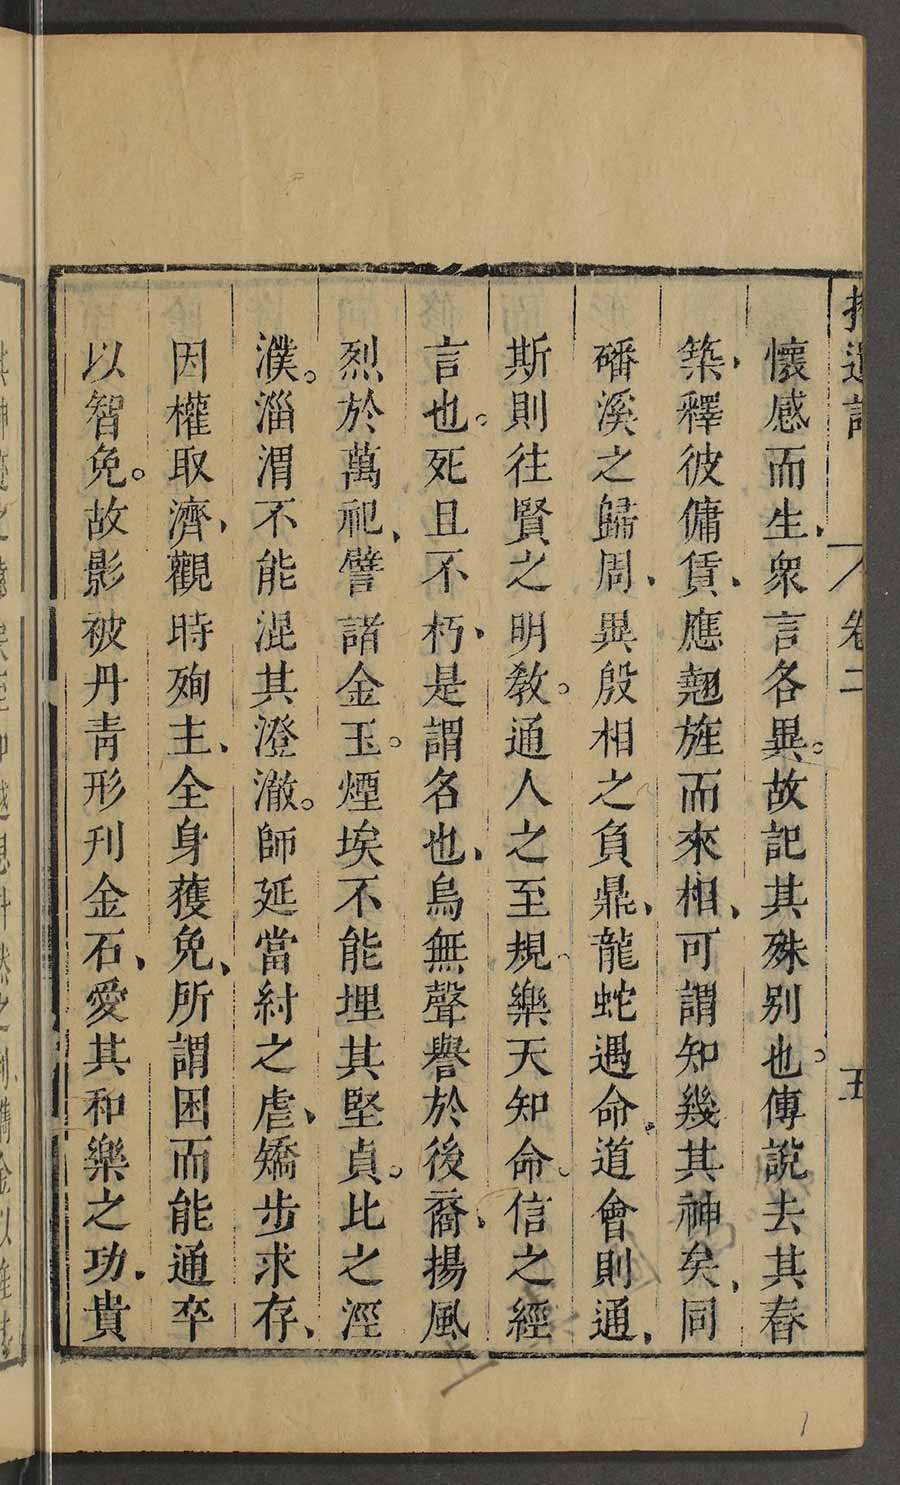 拾遺記　卷二　五
懷感而生、衆言各異。故記其殊别也。傳説去其舂
築、釋彼傭賃、應翹旌而來相、可謂知幾其神矣、同
磻溪之歸周、異殷相之負鼎、龍蛇遇命、道會則通、
斯則往賢之明敎。通人之至規、樂天知命。信之經
言也。死且不朽、是謂名也、烏無聲譽於後裔、揚風
烈於萬祀、譬諸金玉。煙埃不能埋其堅貞。比之涇
濮。淄渭不能混其澄澈。師延當紂之虐、矯步求存、
因權取濟、觀時殉主、全身獲免、所謂困而能通卒
以智免。故影被丹靑形刋金石、愛其和樂之功、貴